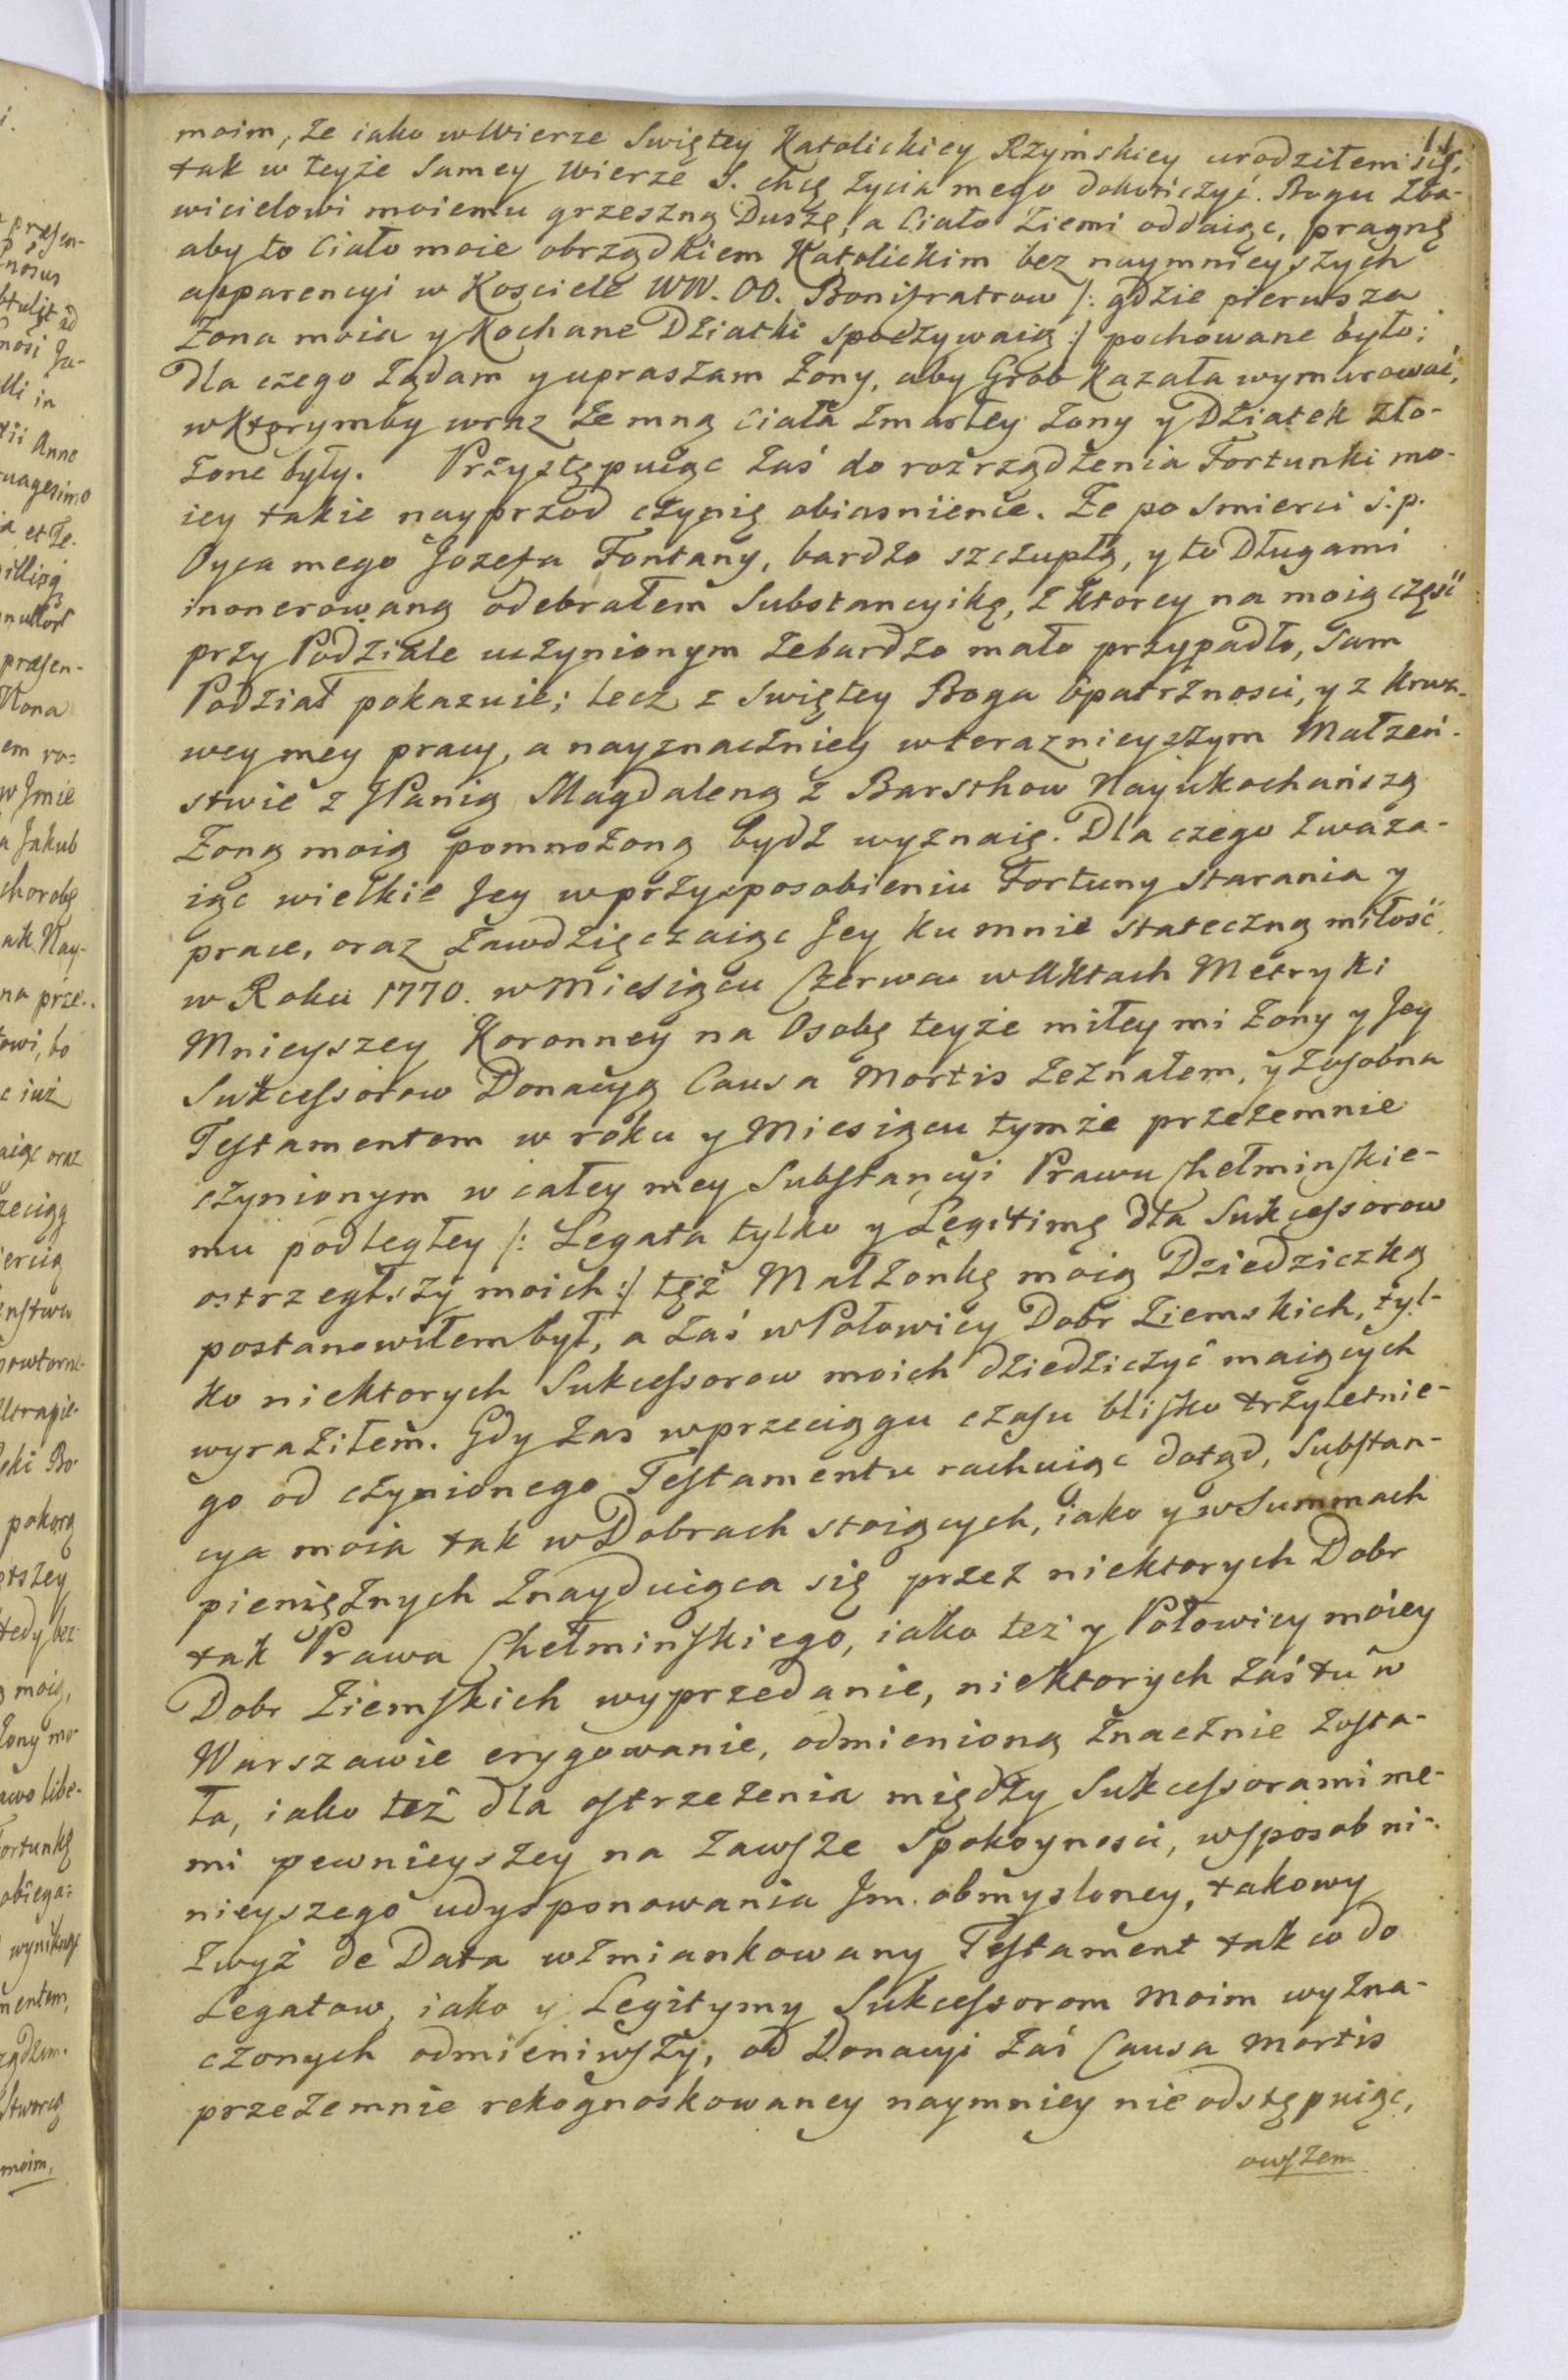 moim, że iako w Wierze Swiętey Katolickiey Rzymskiey urodziłem się,
tak w teyże Samey Wierze S. chcę życia mego dokończyć. Bogu Zba-
wicielowi moiemu grzeszną Duszę, a Ciało Ziemi oddaiąc, pragnę
aby to Ciało moie obrządkiem Katolickim bez naymnieyszych
apparencyi w Kosciele WW. OO. Bonifratrow /: gdzie pierwsza
Żona moia y Kochane Dziatki spoczywaią :/ pochowane było:
Dla czego żądam y upraszam Żony, aby Grob kazała wymurować,
w ktorymby wraz ze mną Ciała zmarłey Żony y Dziatek zło-
żone były. Przystępuiąc zaś do rozrządzenia Fortunki mo-
iey takie nayprzod czynię obiasnienie. Że po smierci ś.p.
Oyca mego Jozefa Fontany, bardzo szczupłą, y to Długami
inonerowaną odebrałem Substancyikę, z ktorey na moią część
przy Podziale uczynionym że bardzo mało przypadło, Sam
Podział pokazuie; lecz z Swiętey Boga Opatrznosci, y z krwa-
wey mey pracy, a nayznaczniey w teraznieyszym Małżeń-
stwie z JPanią Magdaleną z Barsthow Nayukochańszą
Żoną moią pomnożoną bydź wyznaię. Dla czego zważa-
iąc wielkie Jey w przysposobieniu Fortuny starania y
prace, oraz zawdzięczaiąc Jey ku mnie stateczną miłość
w Roku 1770. w Miesiącu Czerwcu w Aktach Metryki
Mnieyszey Koronney na Osobę teyże miłey mi Żony y Jey
Sukcessorow Donacyą Causa Mortis zeznałem, y zosobna
Testamentem w roku y Miesiącu tymże przezemnie
czynionym w całey mey Substancyi Prawu Chełminskie-
mu podległey /: Legata tylko y Legitimę dla Sukcessorow
ostrzegłszy moich :/ tęż Małżonkę moią Dziedziczką
postanowiłem był, a zaś w Połowicy Dobr Ziemskich, tyl-
ko niektorych Sukcessorow moich dziedziczyć maiących
wyraziłem. Gdy zas w przeciągu czasu blisko trzyletnie-
go od czynionego Testamentu rachuiąc dotąd, Substan-
cya moia tak w Dobrach stoiących, iako y w Summach
pieniężnych znayduiąca się przez niektorych Dobr
tak Prawa Chełminskiego, iako też y Połowicy moiey
Dobr Ziemskich wyprzedanie, niektorych zaś tu w
Warszawie erygowanie, odmienioną znacznie zosta-
ła, iako też dla ostrzeżenia między Sukcessorami me-
mi pewnieyszey na zawsze Spokoynosci, w sposob ni-
nieyszego udysponowania Jm. obmysloney, takowy
zwyż de Data wzmiankowany Testament tak co do
Legatow, iako y Legitymy Sukcessorom moim wyzna-
czonych odmieniwszy, od Donacyi zaś Causa Mortis
przezemnie rekognoskowaney naymniey nie odstępuiąc,
owszem